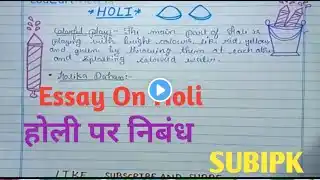 *HOLI*
Colorful play:- The main part of Holi is
playing with bright colours like red, yellow
and green by throwing them at each other
and splashing colored water.
* Holika Dahan:-
Essay On Holi
होली पर निबंध
SUBIPK
LIKE SUBSCRIBE AND SHARE